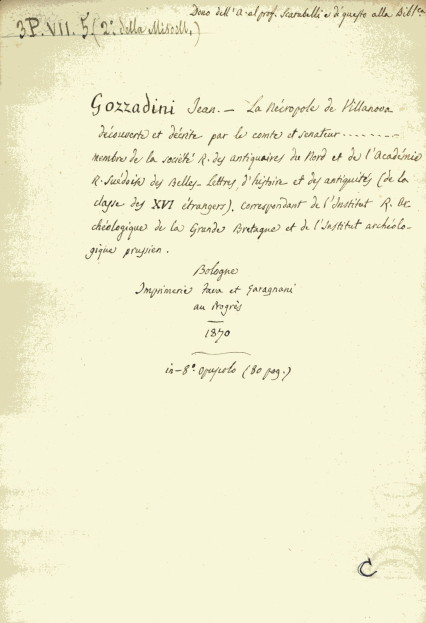 Dono dell'A. al prof. Scarabelli e di questo alla Bibl.ca
3P. VII. 5 (2.° della Miscell.)
Gozzadini Jean. — La Nécropole de Villanova
découverte et décrite par le comte et senateur --------
membre de la société R. des antiquaires du Nord et de l'Académie
R. Suédoise des Belles-Lettres d'histoire et des antiquités (de la
classe des XVI étrangers), correspondant de l'Institut R. Ar-
chéologique de la Grande Bretagne et de l'Institut archéolo-
gique prussien.
Bologne
Imprimerie Fava et Garagnani
au Progrès
1870
in-8.° opuscolo (80 pag.)
C